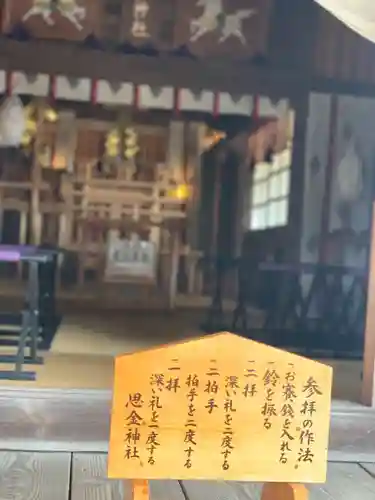 参拝の作法
一お賽銭を入れる
一鈴を振る
二二拝
深い礼を二度する
二二拍手
拍手を二度する
二一拝
深い礼を一度する
思金神社